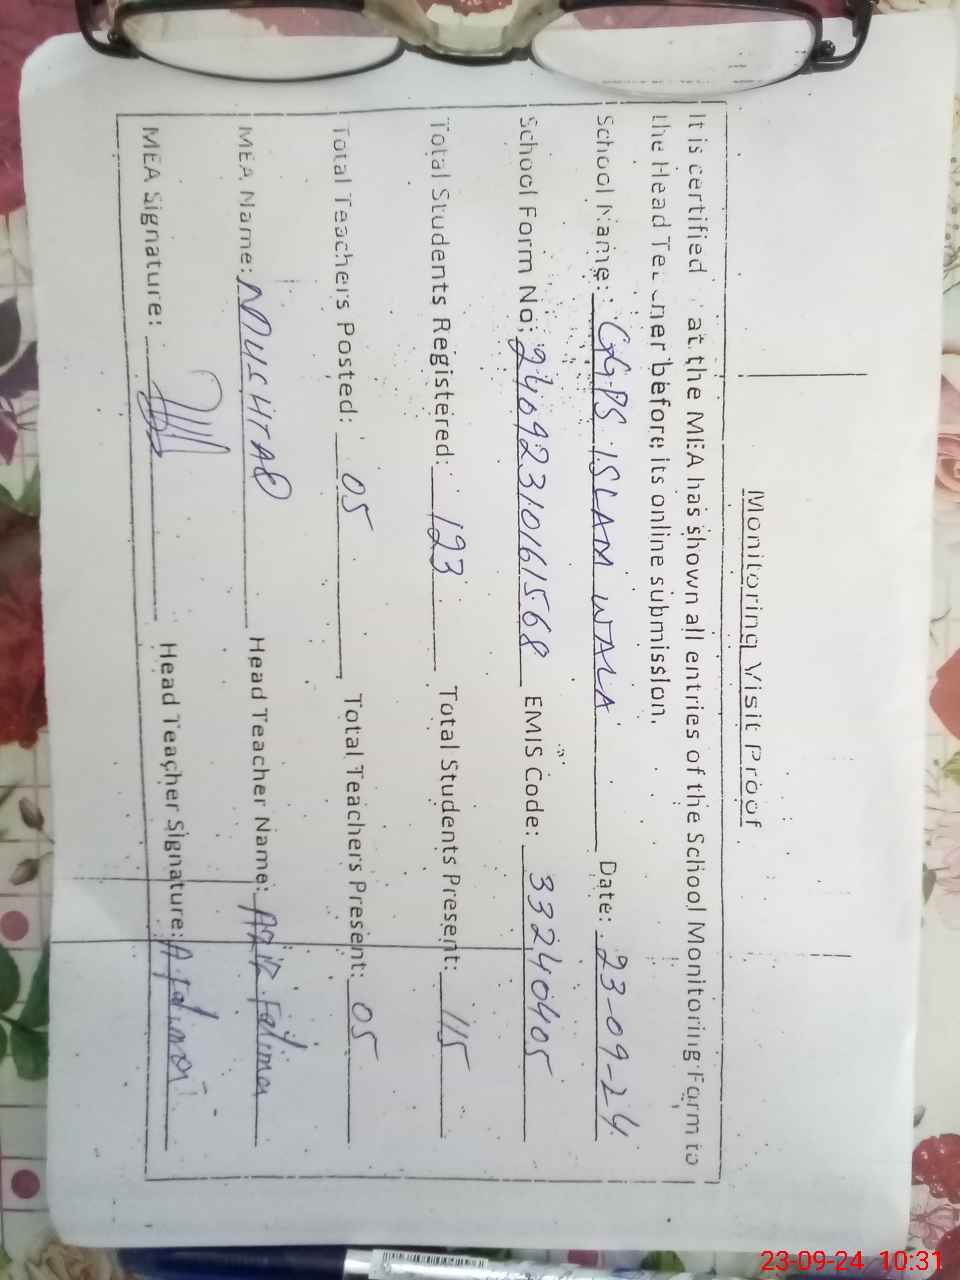 Monitoring Visit Proof
It is certified at the MEA has shown all entries of the School Monitoring Form to
the Head Teacher before its online submission.
School Name: GGPS ISLAM WALA Date: 23-09-24
School Form No: 24092310161568 EMIS Code: 33240405
Total Students Registered: 123 Total Students Present: 115
Total Teachers Posted: 05 Total Teachers Present: 05
MEA Name: MUSHTAQ Head Teacher Name: Fatima
MEA Signature: Head Teacher Signature:
23-09-24 10:31